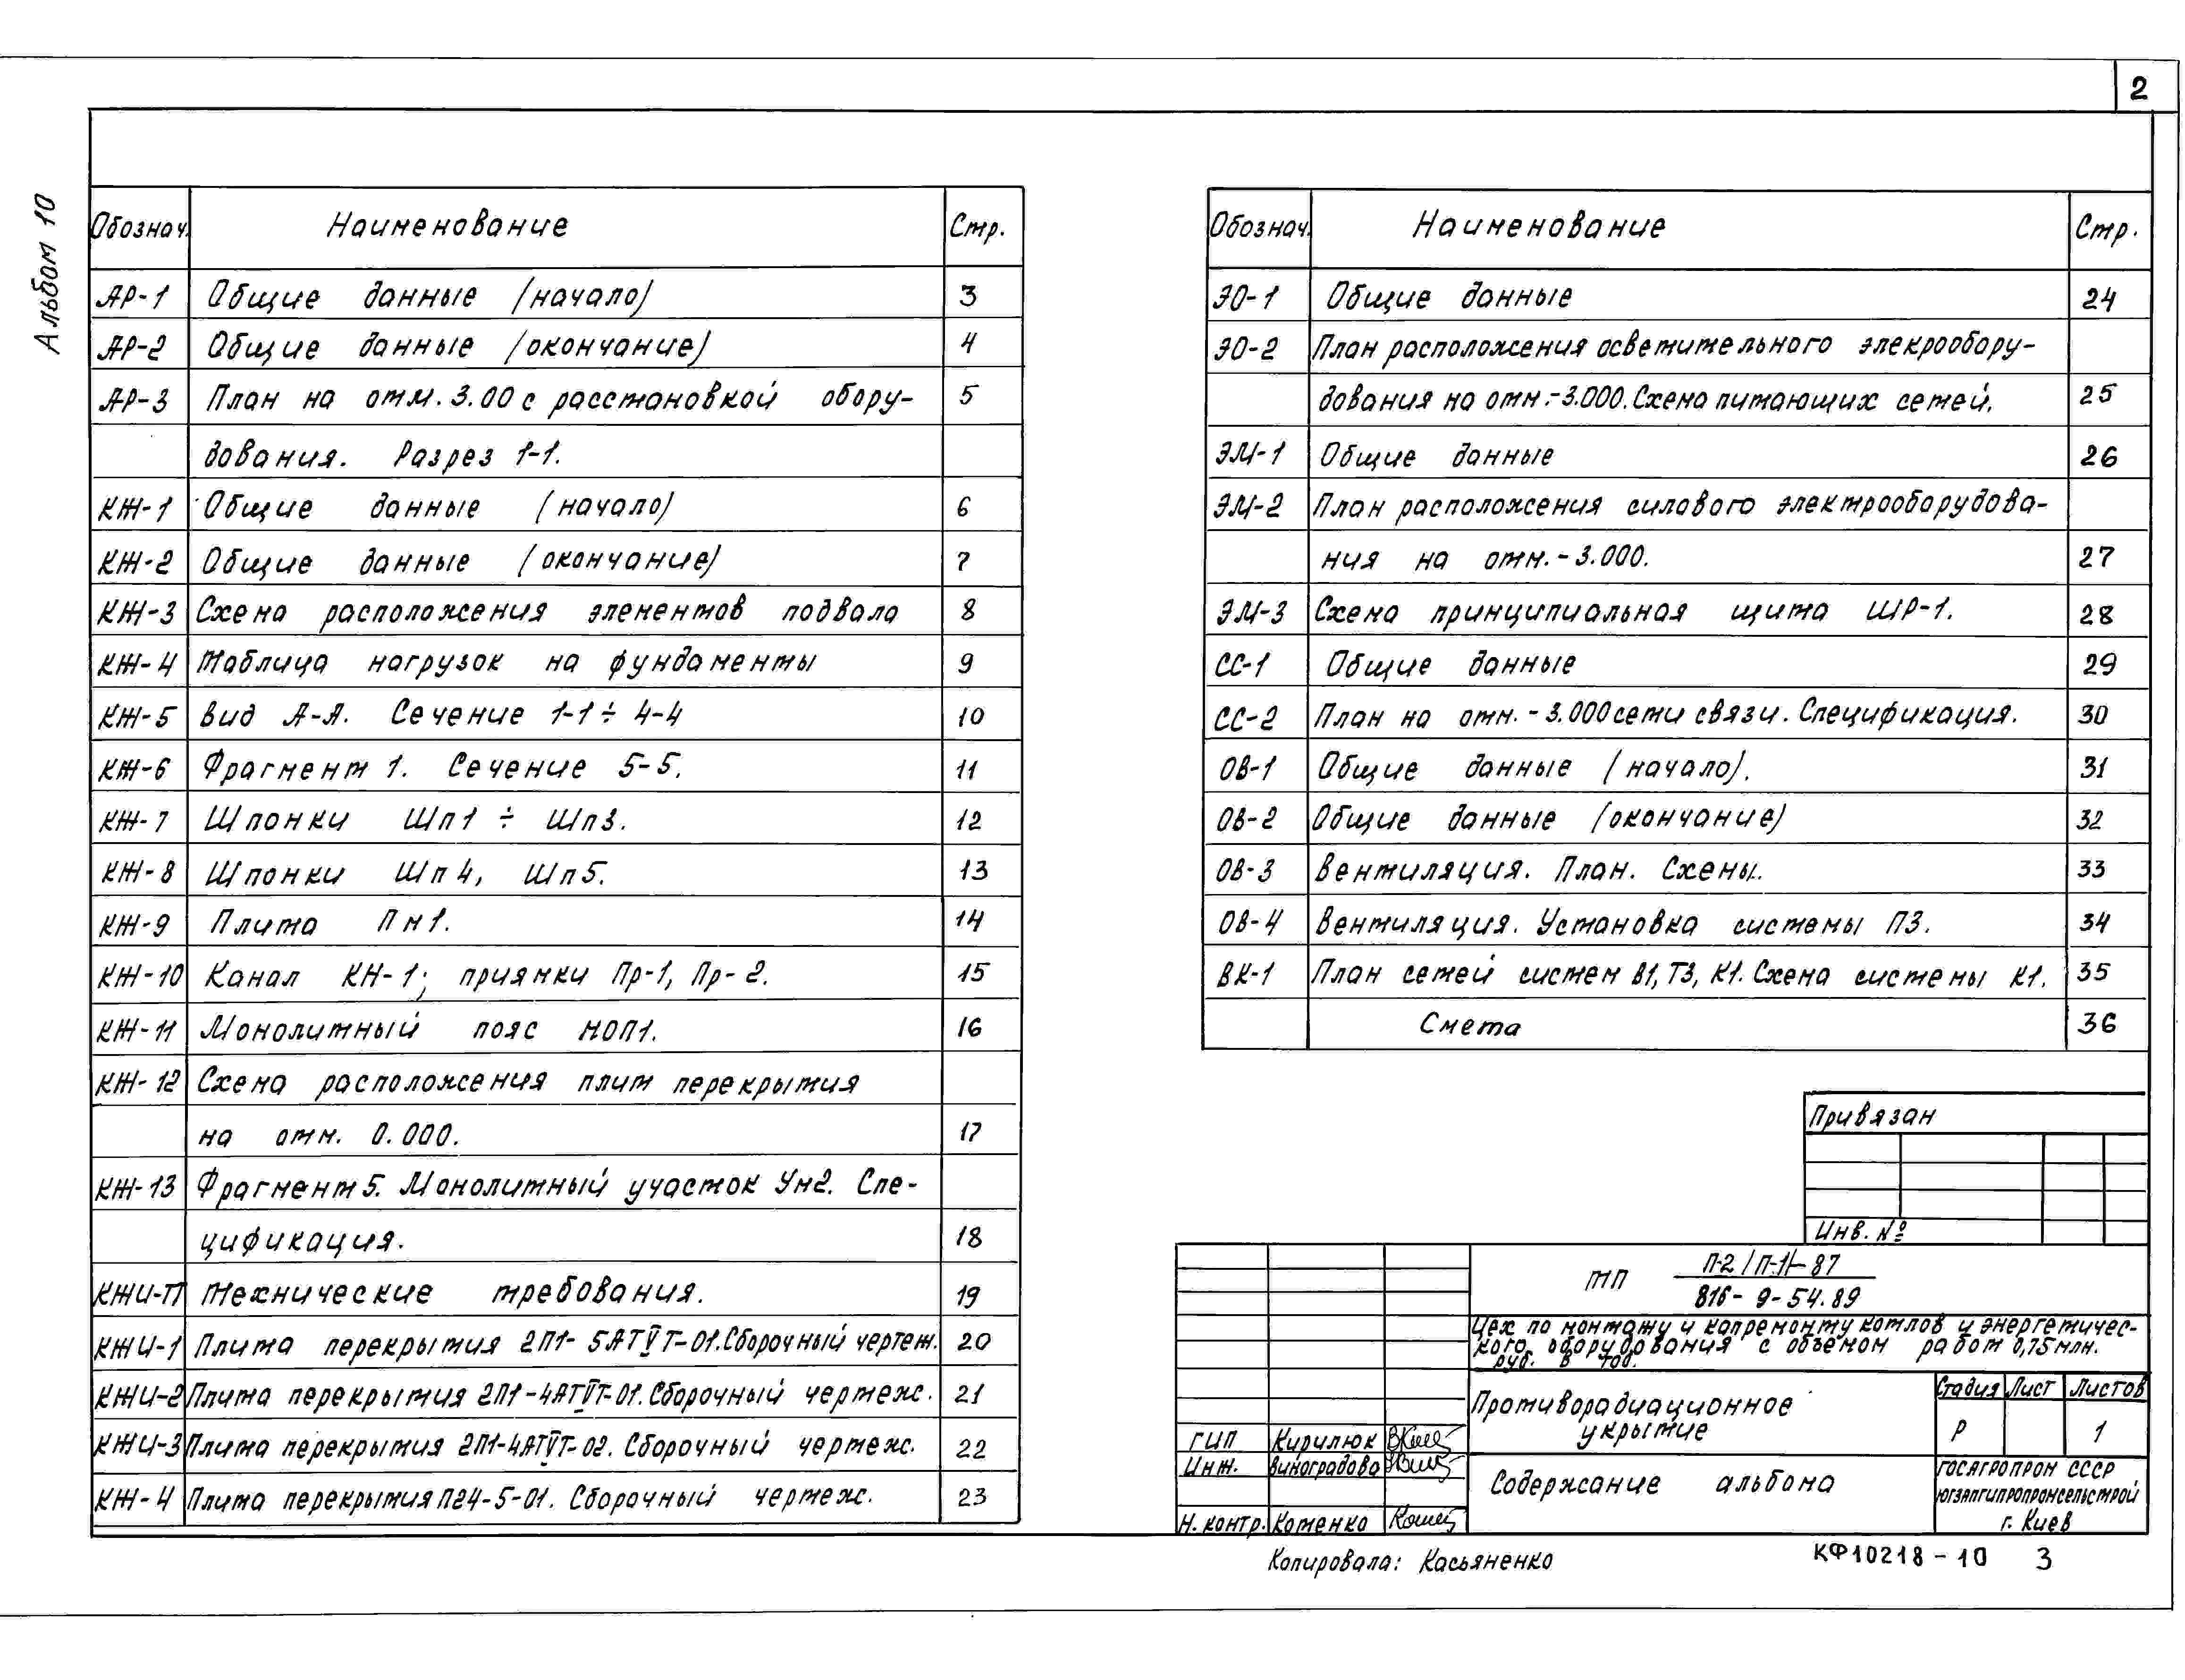 2
Альбом 10
Обознач. Наименование Стр.
АР-1 Общие данные (начало) 3
АР-2 Общие данные (окончание) 4
АР-3 План на отм. 3.00 с расстановкой обору- 5
дования. Разрез 1-1.
КЖ-1 Общие данные (начало) 6
КЖ-2 Общие данные (окончание) 7
КЖ-3 Схема расположения элементов подвала 8
КЖ-4 Таблица нагрузок на фундаменты 9
КЖ-5 Вид А-А. Сечение 1-1 ÷ 4-4 10
КЖ-6 Фрагмент 1. Сечение 5-5. 11
КЖ-7 Шпонки Шп1 ÷ Шп3. 12
КЖ-8 Шпонки Шп4, Шп5. 13
КЖ-9 Плита Пм1. 14
КЖ-10 Канал КН-1; приямки Пр-1, Пр-2. 15
КЖ-11 Монолитный пояс МОП1. 16
КЖ-12 Схема расположения плит перекрытия
на отм. 0.000. 17
КЖ-13 Фрагмент 5. Монолитный участок Ум2. Спе-
цификация. 18
КЖИ-П Технические требования. 19
КЖИ-1 Плита перекрытия 2П1-5АТⅤТ-01. Сборочный чертеж. 20
КЖИ-2 Плита перекрытия 2П1-4АТⅤТ-01. Сборочный чертеж. 21
КЖИ-3 Плита перекрытия 2П1-4АТⅤТ-02. Сборочный чертеж. 22
КЖ-4 Плита перекрытия П24-5-01. Сборочный чертеж. 23
Обознач. Наименование Стр.
ЭО-1 Общие данные 24
ЭО-2 План расположения осветительного элекрообору-
дования на отм.-3.000. Схема питающих сетей. 25
ЭМ-1 Общие данные 26
ЭМ-2 План расположения силового электрооборудова-
ния на отм.-3.000. 27
ЭМ-3 Схема принципиальная щита ШР-1. 28
СС-1 Общие данные 29
СС-2 План на отм.-3.000 сети связи. Спецификация. 30
ОВ-1 Общие данные (начало). 31
ОВ-2 Общие данные (окончание) 32
ОВ-3 Вентиляция. План. Схемы. 33
ОВ-4 Вентиляция. Установка системы П3. 34
ВК-1 План сетей систем В1, Т3, К1. Схема системы К1. 35
Смета 36
Привязан
Инв. №
ТП П-2/П-1/-87
816-9-54.89
Цех по монтажу и капремонту котлов и энергетичес-
кого оборудования с объемом работ 0,75 млн.
руб. в год.
Противорадиационное
укрытие
Стадия Лист Листов
Р 1
ГИП Кирилюк
Инж. Виноградова
Н. контр. Коменко
Содержание альбома
ГОСАГРОПРОМ СССР
ЮГЗАПГИПРОПРОМСЕЛЬСТРОЙ
г. Киев
Копировала: Касьяненко
КФ10218-10 3